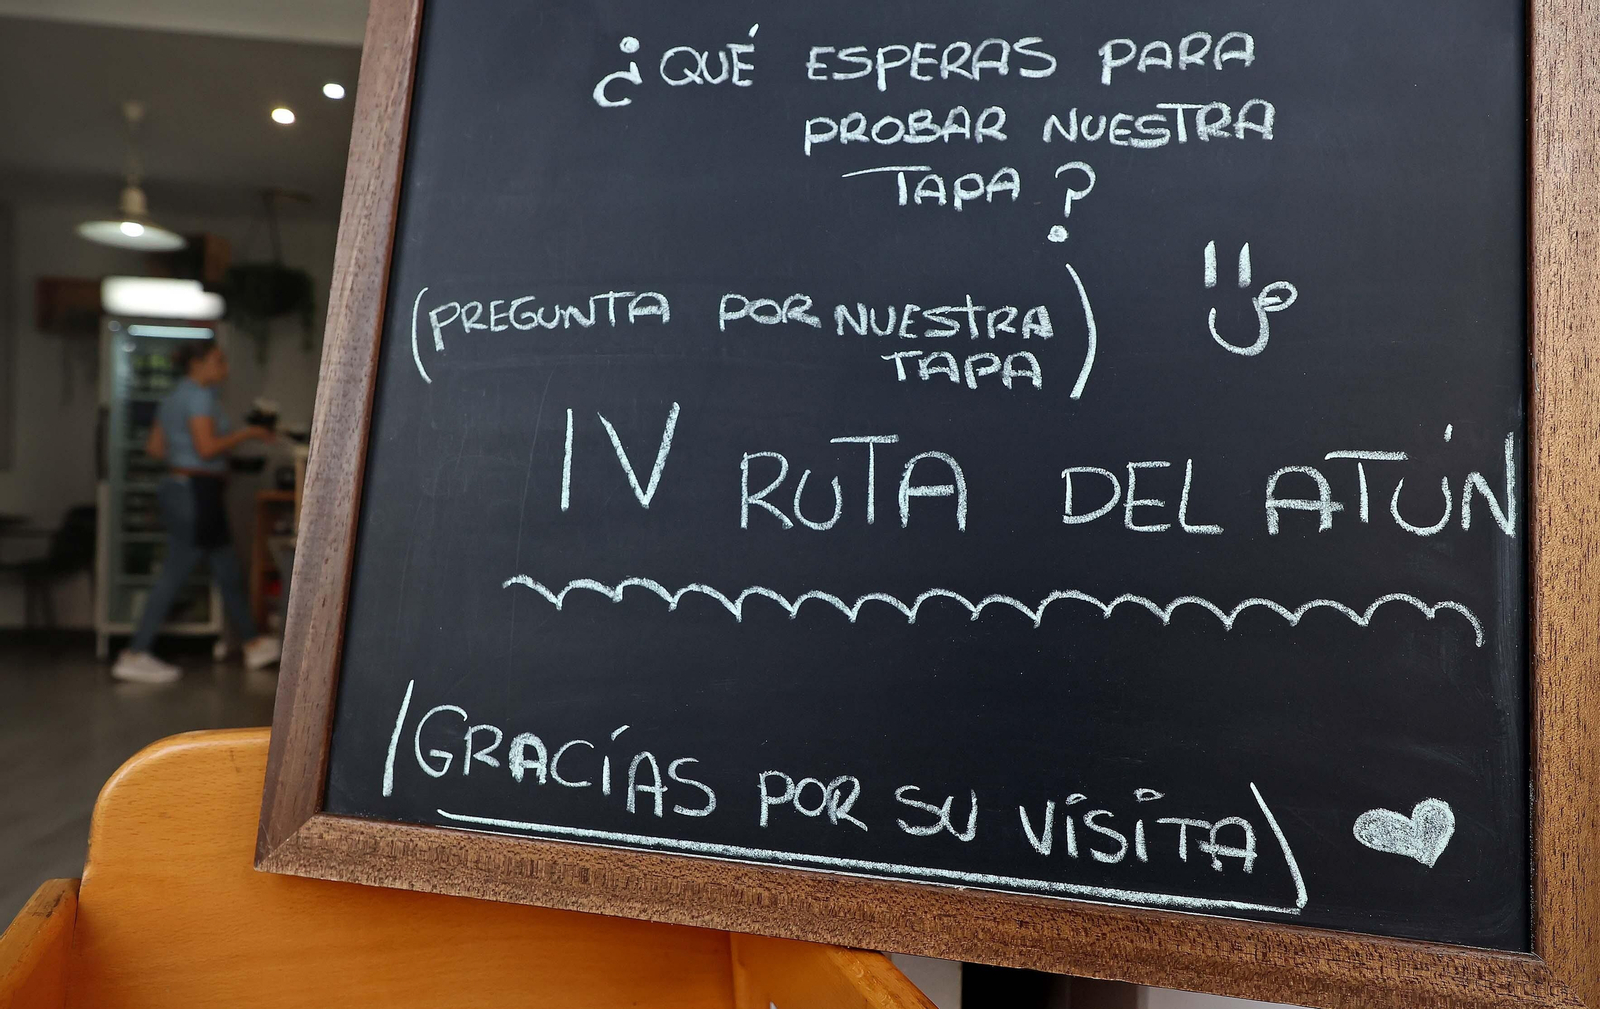 ¿QUÉ ESPERAS PARA
PROBAR NUESTRA
TAPA?
(PREGUNTA POR NUESTRA
TAPA)
IV RUTA DEL ATÚN
(GRACÍAS POR SU VISITA)